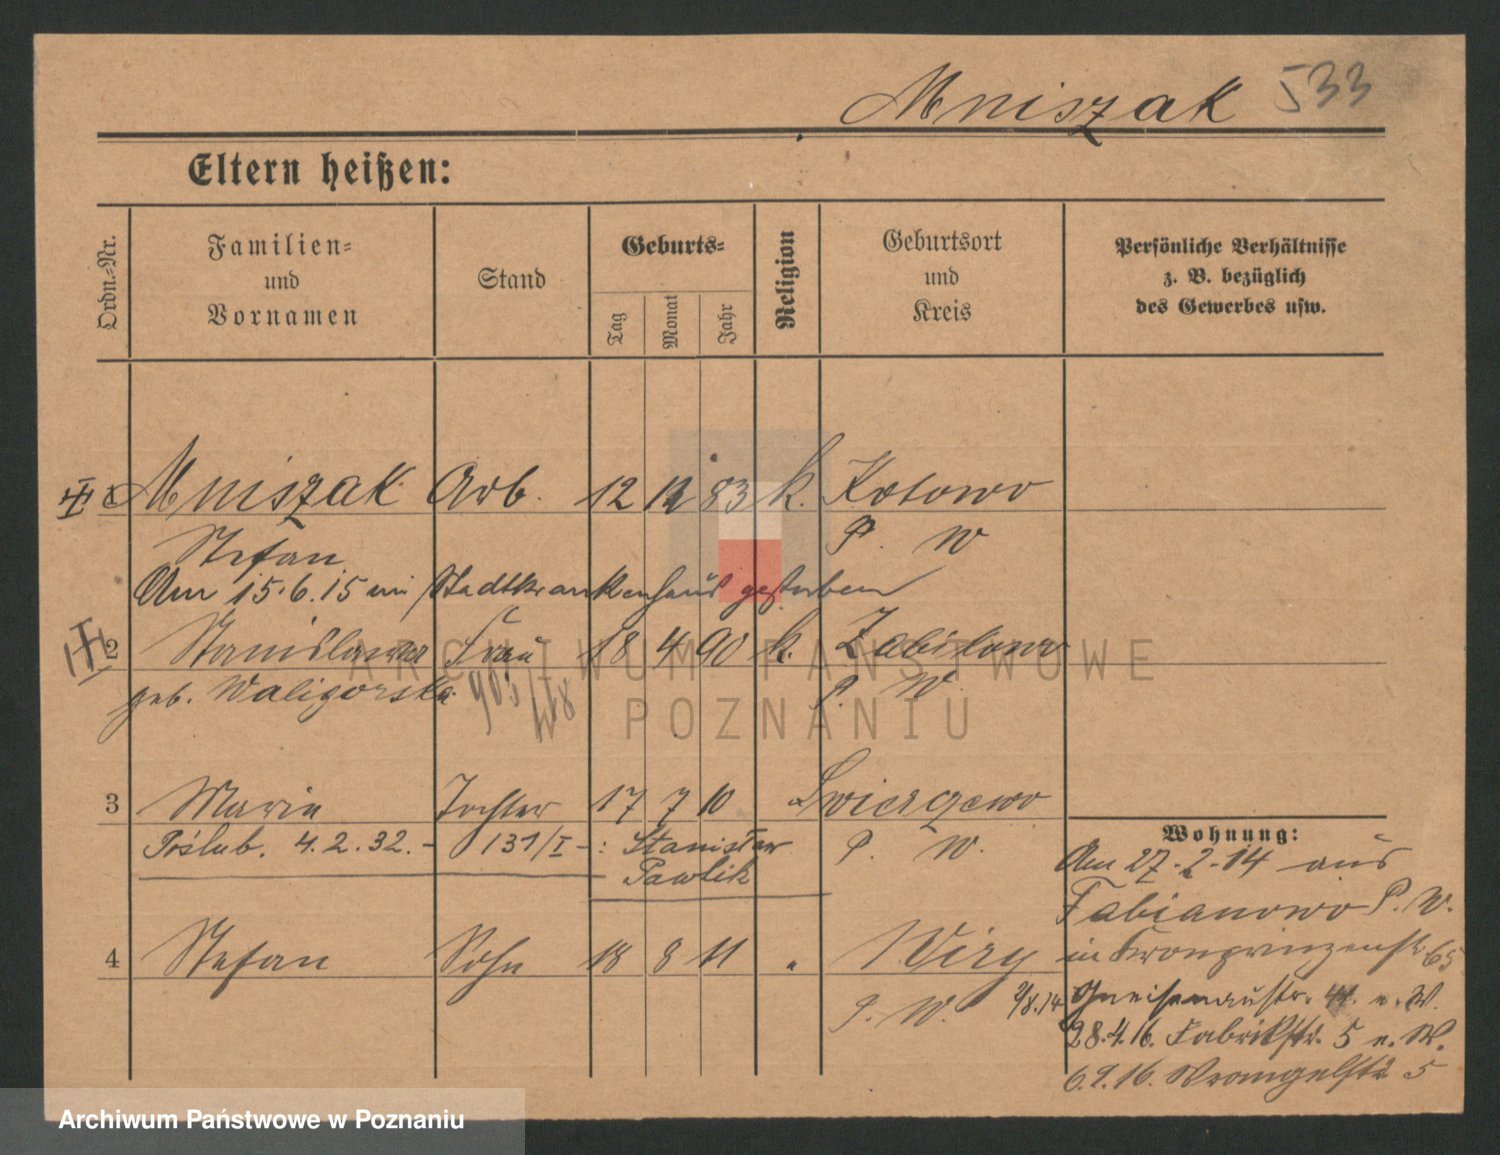 Mniszak 533
Eltern heißen:
Ordn.=Nr.
Familien=
und
Vornamen
Stand
Geburts=
Tag
Monat
Jahr
Religion
Geburtsort
und
Kreis
Persönliche Verhältnisse
z. B. bezüglich
des Gewerbes usw.
1 Mniszak Arb. 12 12 83 k. Kotowo
Stefan P. W
Am 15.6.15 im Stadtkrankenhaus gestorben
2 Stanislawa Frau 18 4 90 k. Zabikowo
geb. Waligorska P. W.
3 Maria Tochter 17 7 10 Swierczewo
Poślub. 4.2.32.- 131/I-: Stanisław P. W.
Pawlik
4 Stefan Sohn 18 8 11 " Wiry
P. W.
Wohnung:
Am 27.2.14 aus
Fabianowo P. W.
in Kronprinzenstr. 65
2/8.14 Gneisenaustr. 41. n. W.
28.4.16. Fabrikstr. 5 n. W.
6.9.16. Wrangelstr 5
ARCHIWUM PAŃSTWOWE
W POZNANIU
Archiwum Państwowe w Poznaniu